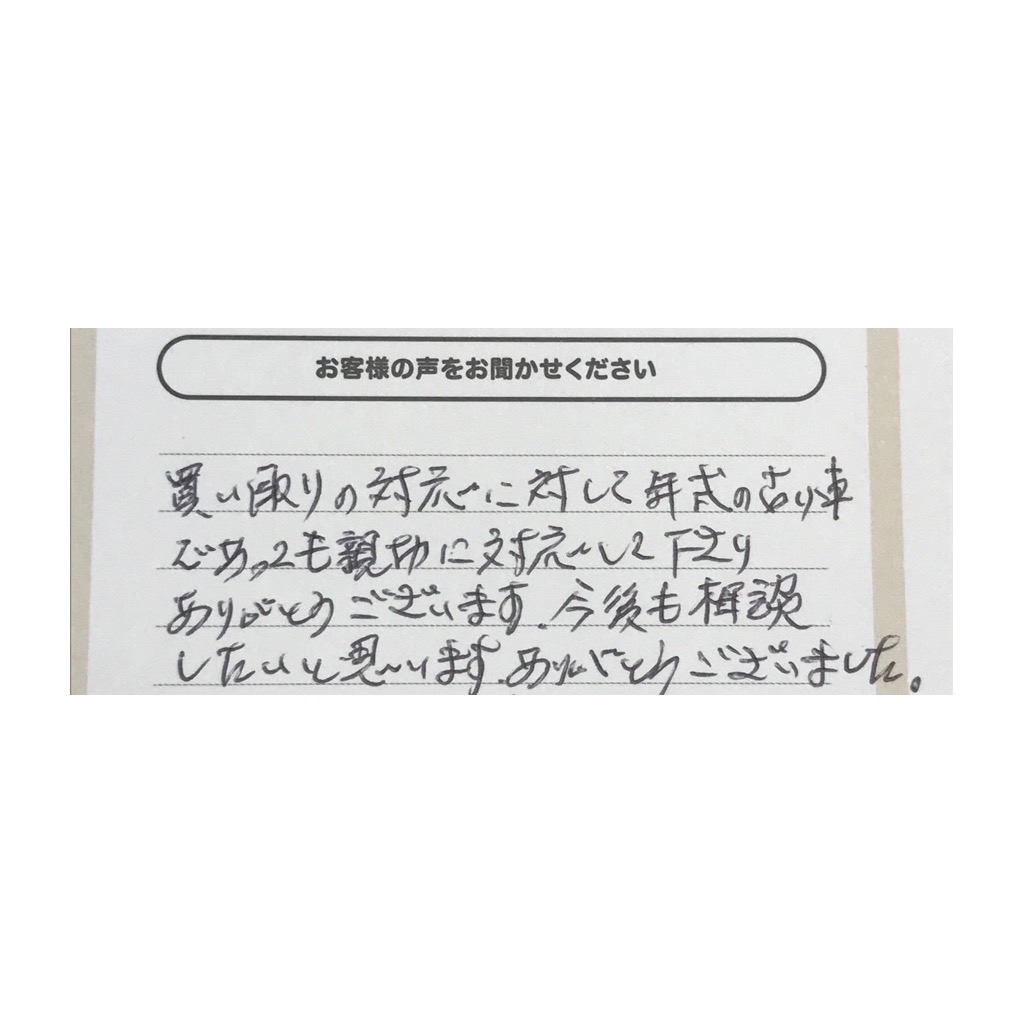 お客様の声をお聞かせください
買い取りの対応に対して年式の古い車
であっても親切に対応して下さり
ありがとうございます。今後も相談
したいと思います。ありがとうございました。